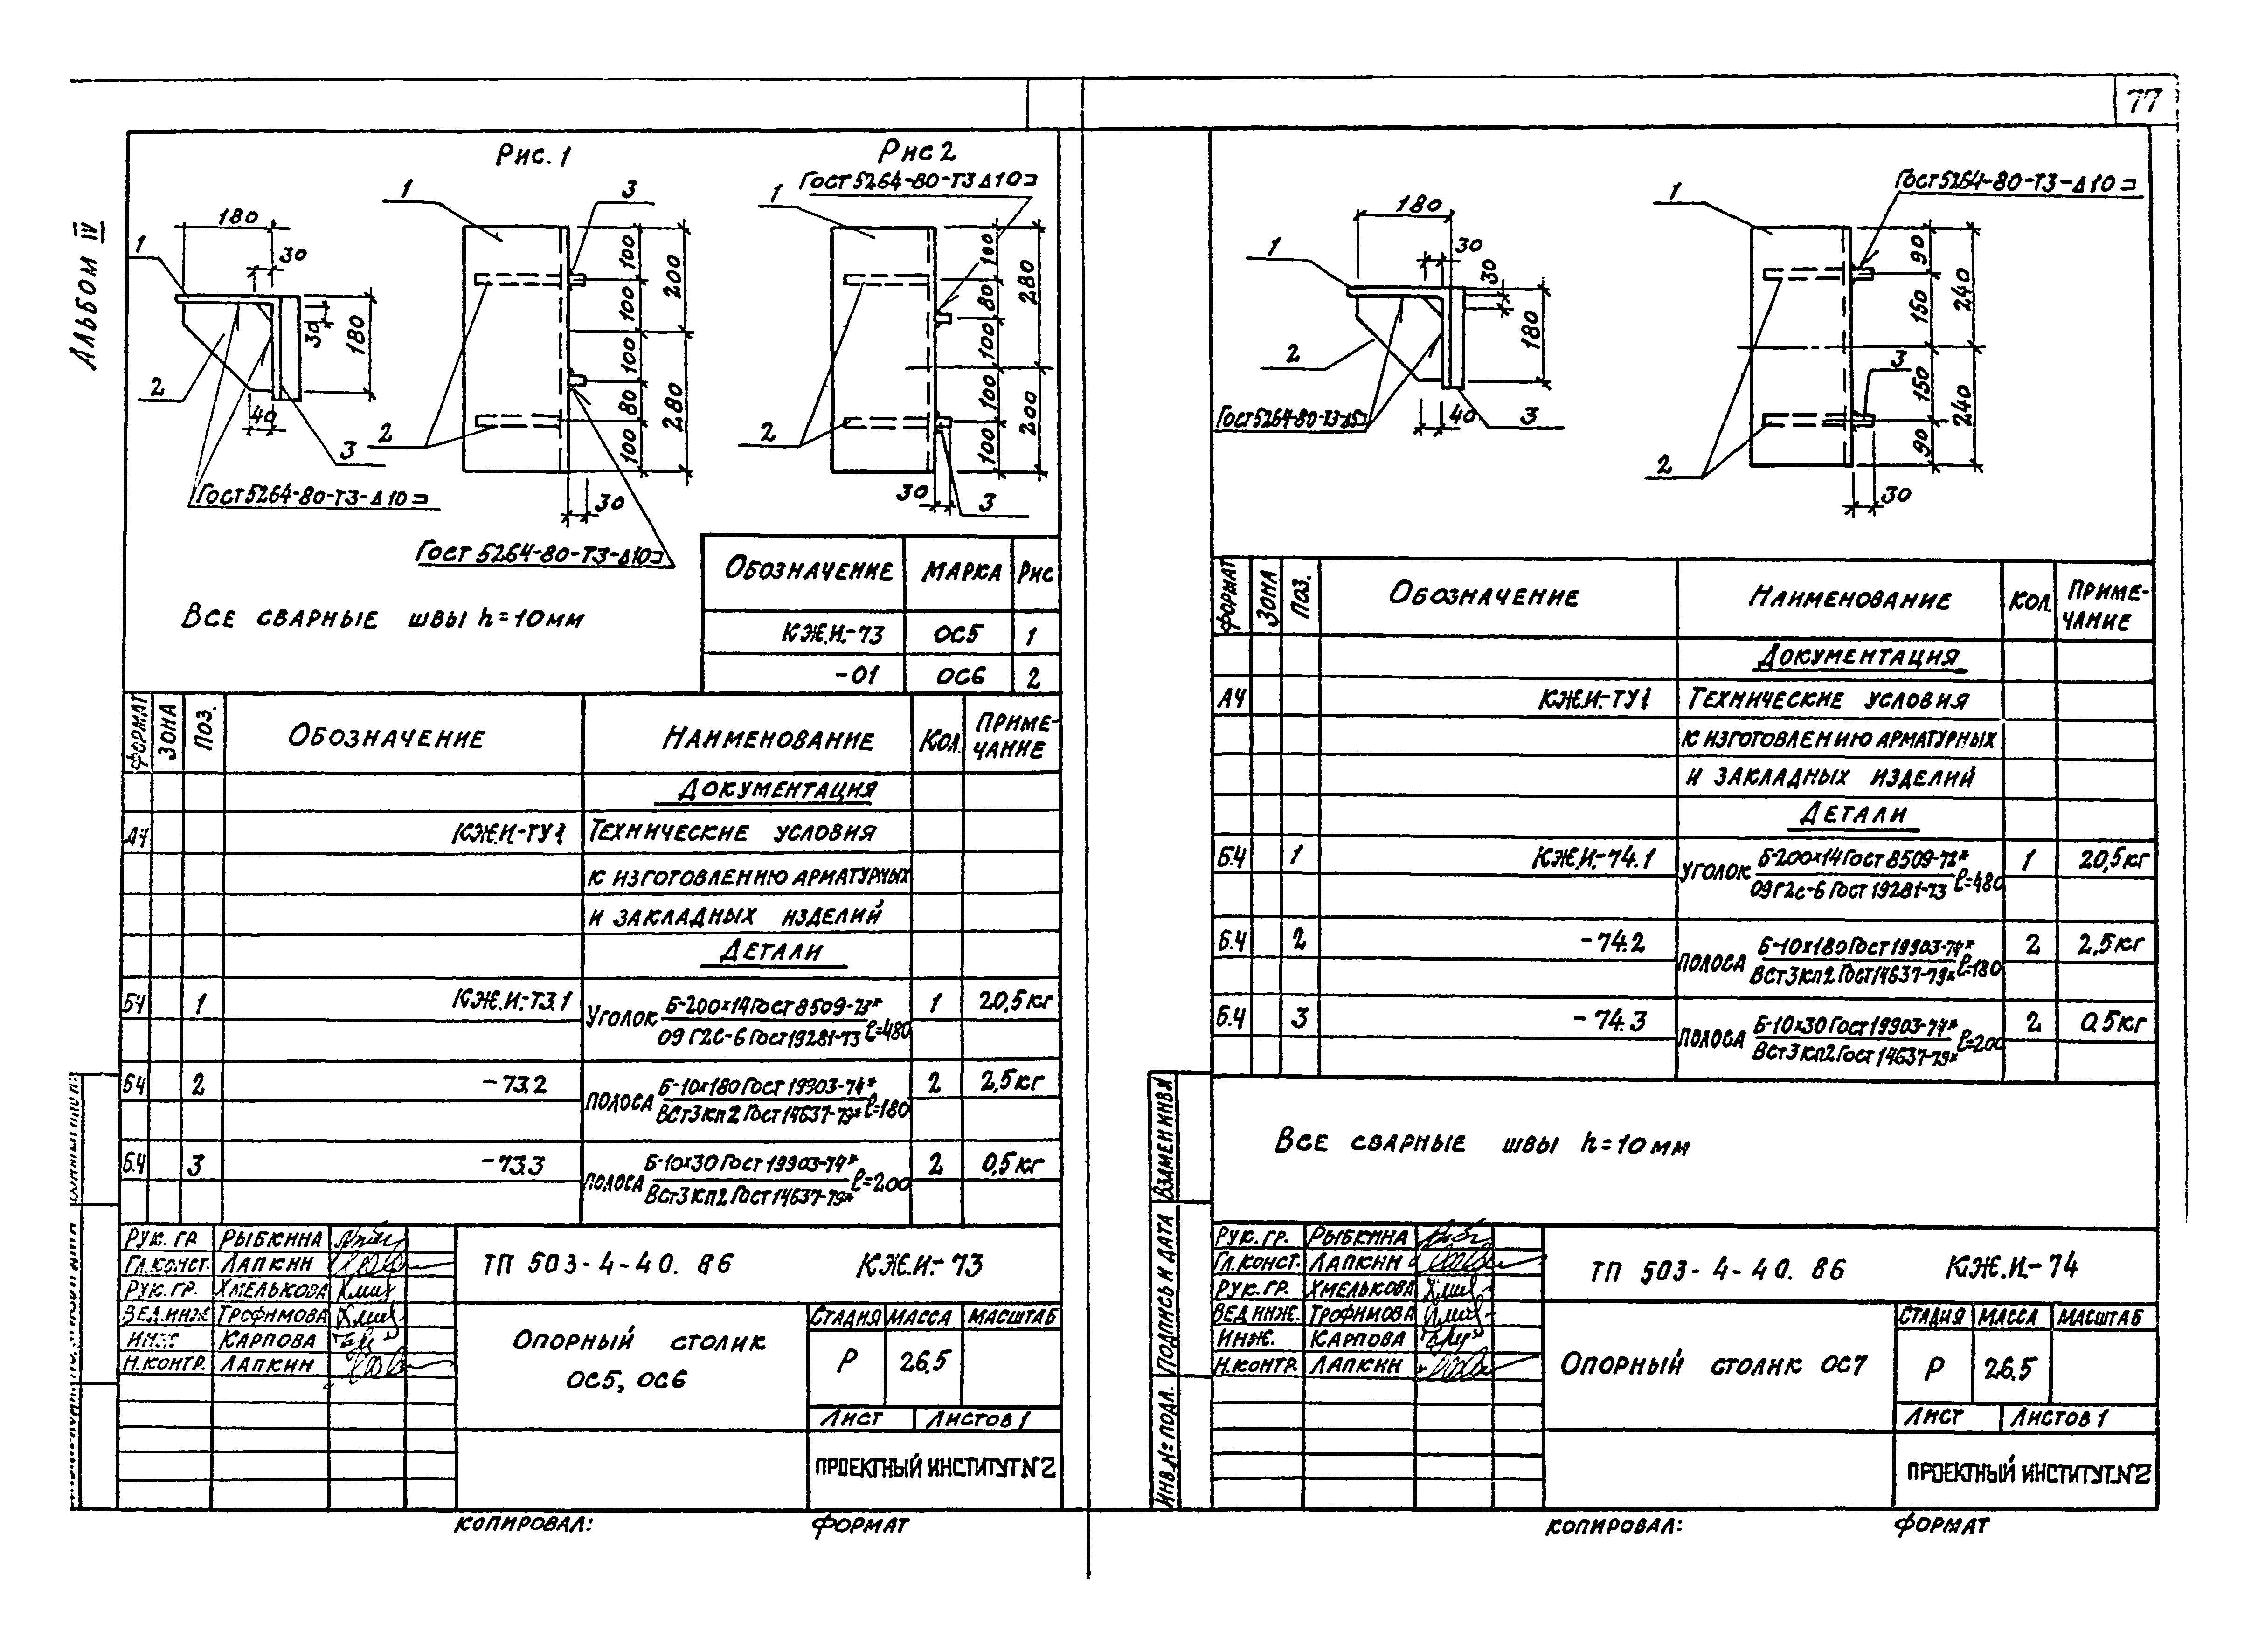 77
Альбом IV
Рис. 1
Рис 2
1
180
30
30
180
2
40
3
Гост 5264-80-Т3-Δ10
1
3
100
200
100
100
80
280
100
2
30
Гост 5264-80-Т3-Δ10
Гост 5264-80-Т3 Δ10
1
100
280
80
100
100
200
100
2
30
3
Все сварные швы h=10мм
Обозначение Марка Рис
КЖ.И.-73 ОС5 1
-01 ОС6 2
Формат Зона Поз. Обозначение Наименование Кол. Приме-
чание
Документация
А4 КЖ.И-ТУ1 Технические условия
к изготовлению арматурных
и закладных изделий
Детали
Б4 1 КЖ.И.-73.1 Уголок Б-200х14 Гост 8509-72* 1 20,5кг
09Г2С-6 Гост 19281-73 ℓ=480
Б4 2 -73.2 Полоса Б-10х180 Гост 19903-74* 2 2,5кг
ВСт3кп2 Гост 14637-79* ℓ=180
Б.4 3 -73.3 Полоса Б-10х30 Гост 19903-74* 2 0,5кг
ВСт3кп2 Гост 14637-79* ℓ=200
Рук. гр Рыбкина
Гл.конст. Лапкин
Рук. гр. Хмелькова
Вед.инж Трофимова
Инж Карпова
Н.контр. Лапкин
ТП 503-4-40.86 КЖ.И.-73
Опорный столик
ОС5, ОС6
Стадия Масса Масштаб
Р 26,5
Лист Листов 1
Проектный институт №2
Копировал: Формат
1
180
30
30
180
2
40
3
Гост 5264-80-Т3-Δ5
Гост 5264-80-Т3-Δ10
1
90
240
150
3
150
240
90
2
30
Формат Зона Поз. Обозначение Наименование Кол. Приме-
чание
Документация
А4 КЖ.И.-ТУ1 Технические условия
к изготовлению арматурных
и закладных изделий
Детали
Б.4 1 КЖ.И.-74.1 Уголок Б-200х14 Гост 8509-72* 1 20,5кг
09Г2С-6 Гост 19281-73 ℓ=480
Б.4 2 -74.2 Полоса Б-10х180 Гост 19903-74* 2 2,5кг
ВСт3кп2 Гост 14637-79* ℓ=180
Б.4 3 -74.3 Полоса Б-10х30 Гост 19903-74* 2 0.5кг
ВСт3кп2 Гост 14637-79* ℓ=200
Все сварные швы h=10мм
Взамен инв.№
Подпись и дата
Инв.№ подл.
Рук. гр. Рыбкина
Гл.конст. Лапкин
Рук. гр. Хмелькова
Вед.инж. Трофимова
Инж. Карпова
Н.контр. Лапкин
ТП 503-4-40.86 КЖ.И.-74
Опорный столик ОС7
Стадия Масса Масштаб
Р 26,5
Лист Листов 1
Проектный институт №2
Копировал: Формат